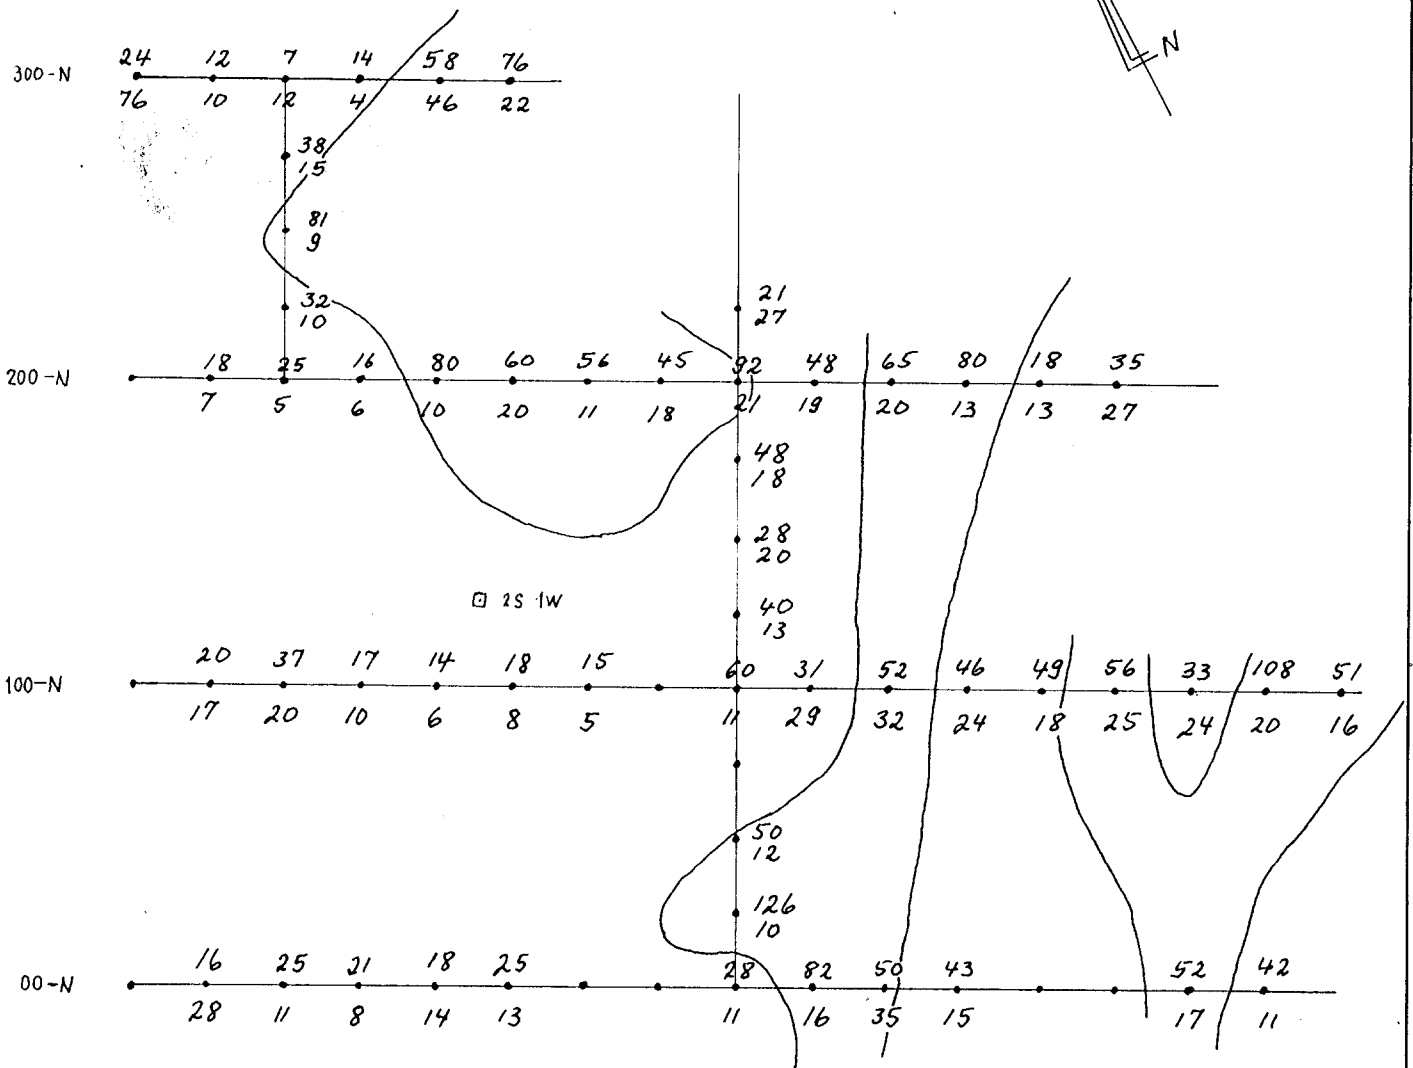 N
24 12 7 14 58 76
300-N
76 10 12 4 46 22
38
15
81
9
32
10
21
27
18 25 16 80 60 56 45 92 48 65 80 18 35
200-N
7 5 6 10 20 11 18 21 19 20 13 13 27
48
18
28
20
2S 1W
40
13
20 37 17 14 18 15 60 31 52 46 49 56 33 108 51
100-N
17 20 10 6 8 5 11 29 32 24 18 25 24 20 16
50
12
126
10
16 25 21 18 25 28 82 50 43 52 42
00-N
28 11 8 14 13 11 16 35 15 17 11